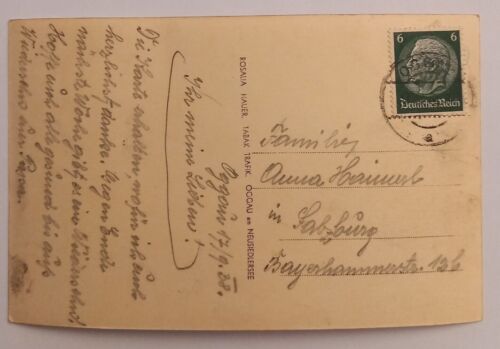 Oggau 17/9.38.
Ihr meine Lieben!
Die Karte erhalten, wofür ich euch
herzlichst danke. Gegen Ende
nächste Woche gibt es ein Wiedersehn!
Hoffe euch alle gesund bis aufs
Wiedersehn hier
ROSALIA HAUER, TABAK TRAFIK, OGGAU am NEUSIEDLERSEE
6 6
Deutsches Reich
a
Familie
Anna Haimerl
in Salzburg
Bayerhammerstr. 12b